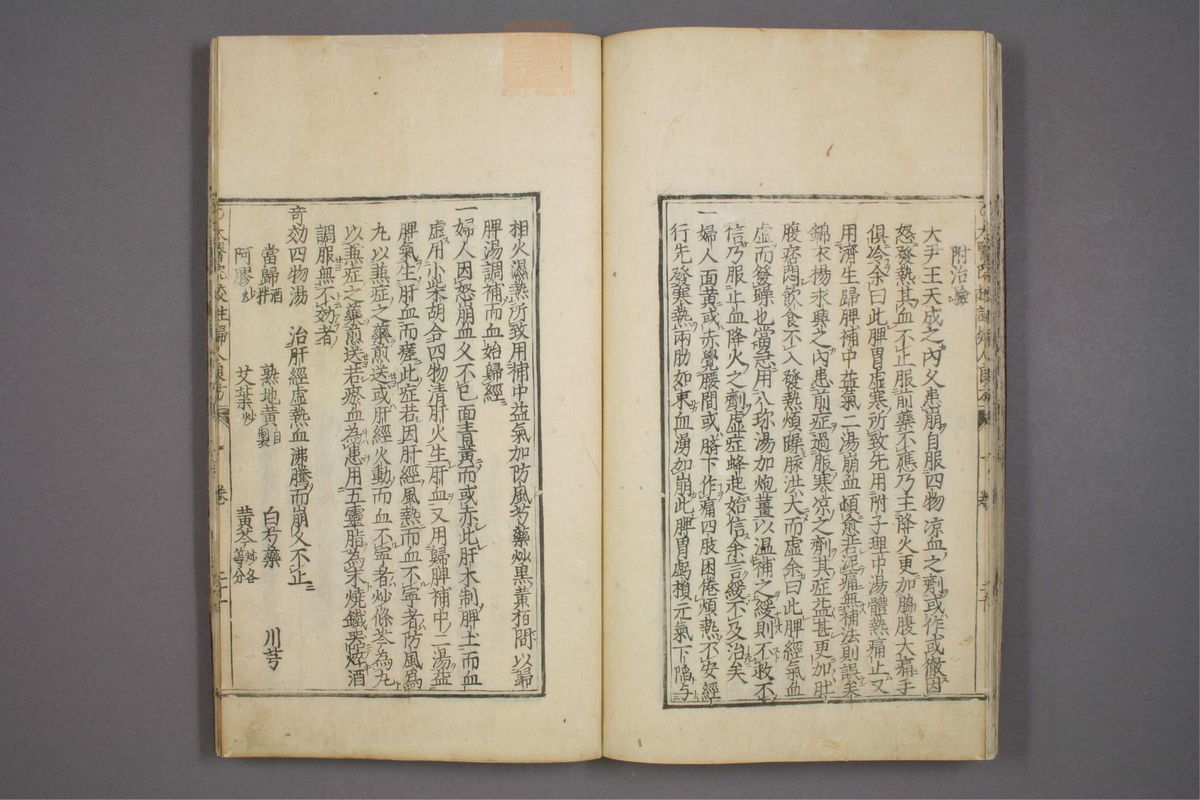 附治驗
大尹王天成之內久患崩自服四物凉血之劑或作或徹因
怒發熱其血不止服前藥不應乃主降火更加脇腹大痛手
俱冷余曰此脾胃虛寒所致先用附子理中湯體熱痛止又
用濟生歸脾補中益氣二湯崩血頓愈若泥痛無補法則誤矣
錦衣楊永興之內患前症過服寒凉之劑其症益甚更加肚
腹痞悶飲食不入發熱煩躁脉洪大而虛余曰此脾經氣血
虛而發躁也當急用八珍湯加炮薑以温補之緩則不敢不
信乃服止血降火之劑虛症蜂起始信余言緩不及治矣
一婦人面黄或赤覺腰間或臍下作痛四肢困倦煩熱不安經
行先發寒熱兩肋如束血湧如崩此脾胃虧損元氣下陷与
相火濕熱所致用補中益氣加防風芍藥炒黑黄栢間以歸
脾湯調補而血始歸經
一婦人因怒崩血久不已面青黄而或赤此肝木制脾土而血
虛用小柴胡合四物清肝火生肝血又用歸脾補中二湯益
脾氣生肝血而瘥此症若因肝經風熱而血不寧者防風為
九以兼症之藥煎送或肝經火動而血不寧者炒條芩為九
以兼症之藥煎送若瘀血為患用五靈脂為末燒鐵器焠酒
調服無不効者
奇効四物湯 治肝經虛熱血沸騰而崩久不止
當歸酒拌 熟地黄自製 白芍藥 川芎
阿膠炒 艾葉炒 黄芩炒各等分
卷 二十一